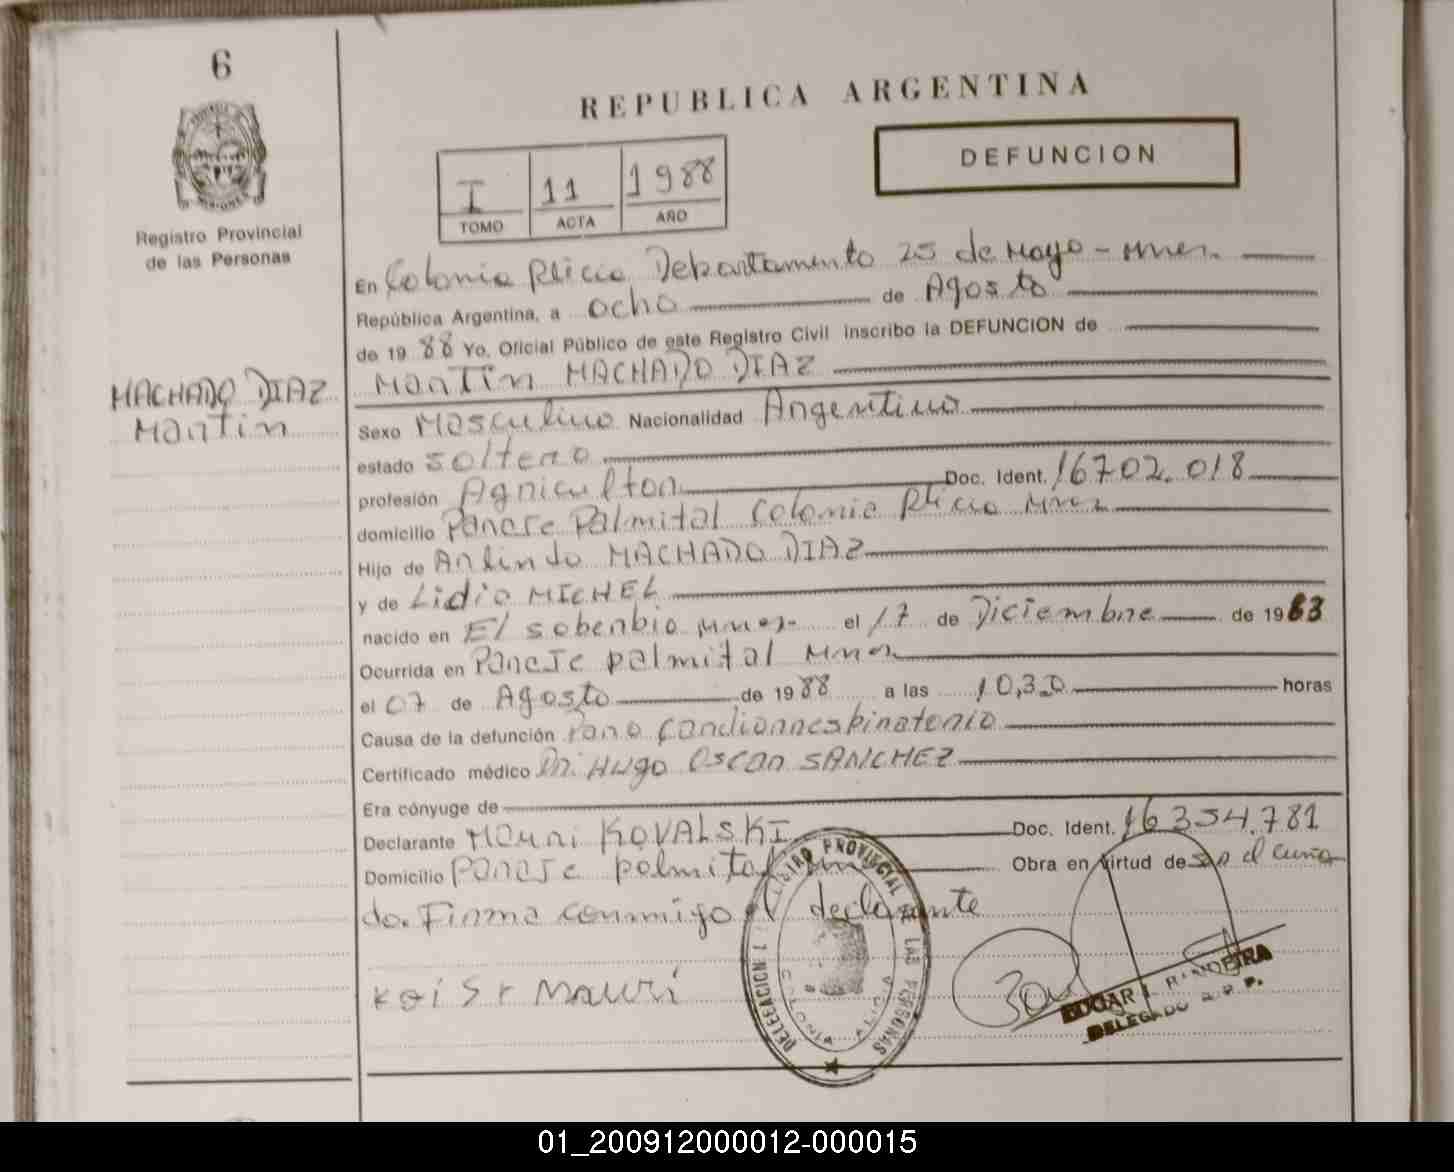 6
REPUBLICA ARGENTINA
DEFUNCION
I 11 1988
TOMO ACTA AÑO
Registro Provincial
de las Personas
En Colonia Alicia Departamento 25 de Mayo - Mnes.
República Argentina, a ocho de Agosto
de 19 88 Yo, Oficial Público de este Registro Civil inscribo la DEFUNCION de
MACHADO DIAZ
Martin
Martin MACHADO DIAZ
Sexo Masculino Nacionalidad Argentino
estado soltero
profesión Agricultor Doc. Ident. 16702.018
domicilio Paraje Palmital Colonia Alicia Mnes
Hijo de Arlindo MACHADO DIAZ
y de Lidia MICHEL
nacido en El soberbio Mnes- el 17 de Diciembre de 1963
Ocurrida en Paraje palmital Mnes
el 07 de Agosto de 1988 a las 10,30 horas
Causa de la defunción Paro cardiorrespiratorio
Certificado médico Dr. Hugo Oscar SANCHEZ
Era cónyuge de
Declarante Mauri KOVALSKI Doc. Ident. 16354.781
Domicilio Paraje palmital Obra en virtud de
do. Firma conmigo el declarante
Mauri
REGISTRO PROVINCIAL DE LAS PERSONAS
DELEGACION
COLONIA ALICIA
EDGAR
DELEGADO R. P. P.
01_200912000012-000015